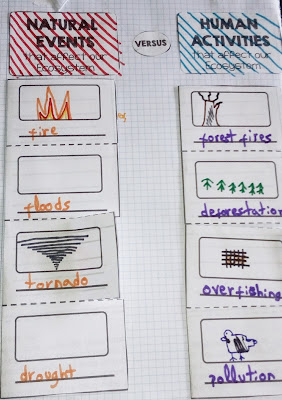 NATURAL
EVENTS
that affect our
Ecosystem
VERSUS
HUMAN
ACTIVITIES
that affect our
Ecosystem
fire
floods
tornado
drought
forest fires
deforestation
overfishing
pollution